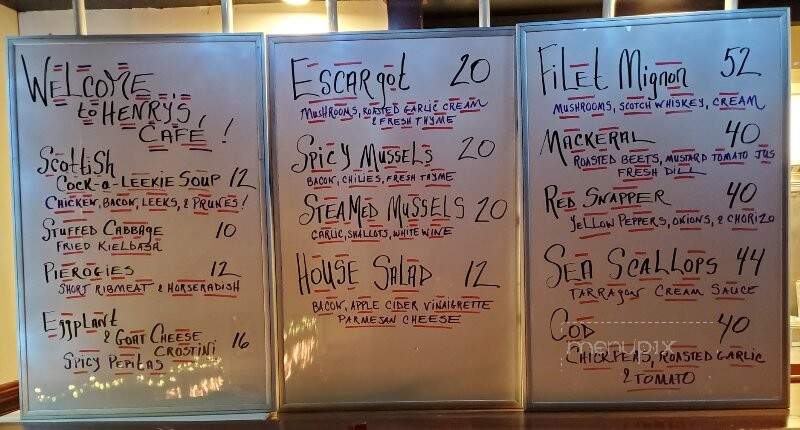 WELCOME
to HENRY'S
CAFÉ!
Scottish
COCK-a-LEEKIE SOUP 12
CHICKEN, BACON, LEEKS, & PRUNES!
STUFFED CABBAGE 10
FRIED KIELBASA
PIEROGIES 12
SHORT RIBMEAT & HORSERADISH
Eggplant
& GOAT CHEESE
CROSTINI 16
SPICY PEPITAS
ESCARGOT 20
MUSHROOMS, ROASTED GARLIC CREAM
& FRESH THYME
SPICY MUSSELS 20
BACON, CHILIES, FRESH THYME
STEAMED MUSSELS 20
GARLIC, SHALLOTS, WHITE WINE
HOUSE SALAD 12
BACON, APPLE CIDER VINAIGRETTE
PARMESAN CHEESE
FILET Mignon 52
MUSHROOMS, SCOTCH WHISKEY, CREAM
MACKERAL 40
ROASTED BEETS, MUSTARD TOMATO JUS
FRESH DILL
RED SNAPPER 40
YELLOW PEPPERS, ONIONS, & CHORIZO
SEA SCALLOPS 44
TARRAGON CREAM SAUCE
COD 40
menupix
CHICKPEAS, ROASTED GARLIC
& TOMATO